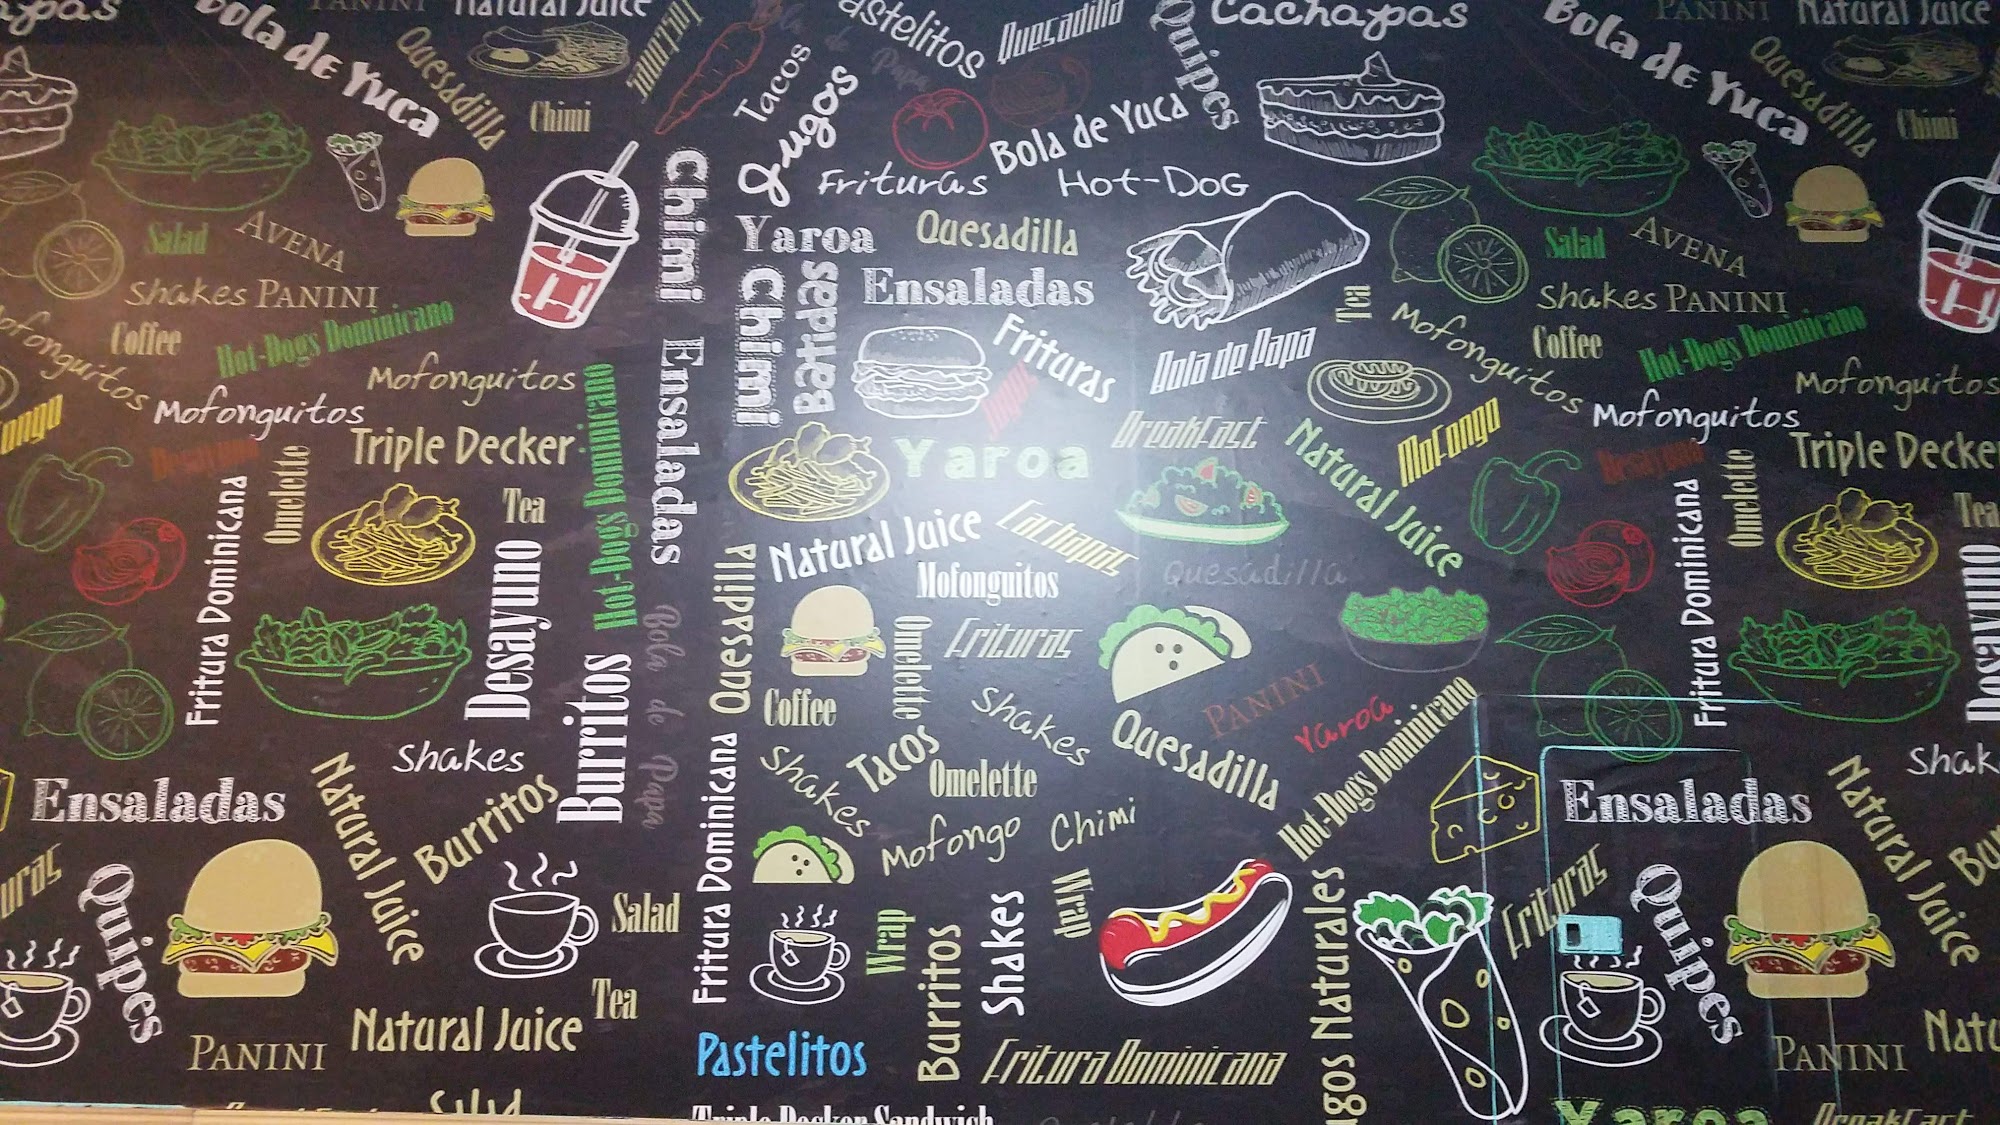 Panini
Natural Juice
Pastelitos
Quesadilla
Cachapas
Panini
Natural Juice
Bola de Yuca
Quesadilla
Chimi
Tacos
Jugos
Quipes
Bola de Yuca
Bola de Yuca
Quesadilla
Chimi
Frituras
Hot-Dog
Salad
Avena
Chimi
Yaroa
Quesadilla
Salad
Avena
Shakes
Panini
Chimi
Batidas
Ensaladas
Tea
Shakes
Panini
Coffee
Hot-Dogs Dominicano
Frituras
Bola de Papa
Mofonguitos
Coffee
Hot-Dogs Dominicano
Mofonguitos
Mofonguitos
Ensaladas
Mofonguitos
Mofonguitos
Mofonguitos
Desayuno
Omelette
Triple Decker
Hot-Dogs Dominicano
Yaroa
Breakfast
Natural Juice
Mofongo
Desayuno
Omelette
Triple Decker
Fritura Dominicana
Tea
Desayuno
Natural Juice
Cachapas
Fritura Dominicana
Tea
Desayuno
Quesadilla
Mofonguitos
Quesadilla
Bola de Papa
Omelette
Frituras
Burritos
Coffee
Shakes
Panini
Yaroa
Shakes
Fritura Dominicana
Shakes
Tacos
Omelette
Quesadilla
Hot-Dogs Dominicano
Ensaladas
Natural Juice
Burritos
Mofongo
Chimi
Ensaladas
Natural Juice
Frituras
Quipes
Salad
Wrap
Burritos
Shakes
Wrap
Jugos Naturales
Quipes
Tea
Panini
Natural Juice
Pastelitos
Fritura Dominicana
Panini
Salad
Triple Decker Sandwich
Yaroa
Breakfast